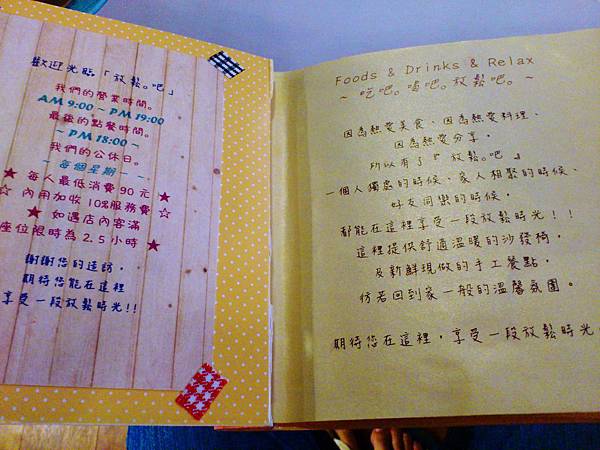 歡迎光臨「放鬆。吧」
我們的營業時間。
AM 9:00 ~ PM 19:00
最後的點餐時間。
~ PM 18:00 ~
我們的公休日。
~ 每個星期一 ~
★ 每人最低消費 90 元 ★
☆ 內用加收 10%服務費 ☆
★ 如遇店內客滿
座位限時為 2.5 小時 ★
謝謝您的造訪，
期待您能在這裡
享受一段放鬆時光!!
Foods & Drinks & Relax
~ 吃吧。喝吧。放鬆吧。~
因為熱愛美食、因為熱愛料理、
因為熱愛分享，
所以有了『放鬆。吧』
一個人獨處的時候、家人相聚的時候、
好友同樂的時候，
都能在這裡享受一段放鬆時光！！
這裡提供舒適溫暖的沙發椅，
及新鮮現做的手工餐點，
彷若回到家一般的溫馨氛圍。
期待您在這裡，享受一段放鬆時光